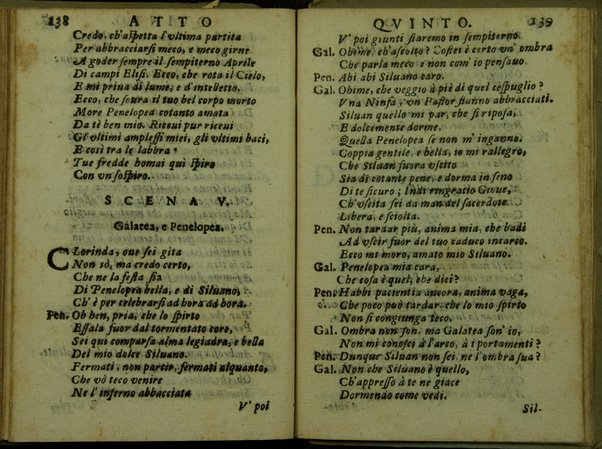 238 ATTO
Credo, ch'aspetta l'vltima partita
Per abbracciarsi meco, e meco girne
A goder sempre il sempiterno Aprile
Di campi Elisi. Ecco, che rota il Cielo,
E mi priua di lume, e d'intelletto.
Ecco, che soura il tuo bel corpo morto
More Penelopea cotanto amata
Da tè ben mio. Riceui pur riceui
Gl'vltimi amplessi miei, gli vltimi baci,
E così tra le labbra
Tue fredde homai quì spiro
Con vn sospiro.
SCENA V.
Galatea, e Penelopea.
CLorinda, oue sei gita
Non sò, ma credo certo,
Che ne la festa sia
Di Penelopea bella, e di Siluano,
Ch'è per celebrarsi ad hora ad hora.
Pen. Oh ben, pria, che lo spirto
Essala fuor dal tormentato core,
Sei quì comparsa alma legiadra, e bella
Del mio dolce Siluano.
Fermati, non partir, fermati alquanto,
Che vò teco venire
Ne l'inferno abbracciata
V' poi
QVINTO. 239
V' poi giunti staremo in sempiterno.
Gal. Obime, ch'ascolto? Costei è certo vn' ombra
Che parla meco e non com' io pensauo.
Pen. Ahi ahi Siluano caro.
Gal. Obime, che veggio à piè di quel cespuglio?
Vna Ninfa, vn Pastor stanno abbracciati.
Siluan quello mi par, che si riposa,
E dolcemente dorme.
Quella Penelopea se non m'inganno.
Coppia gentile, e bella, io mi rallegro,
Che Siluan fuora vscito
Sia di cotante pene, e dorma in seno
Di te sicuro; Indi ringratio Gioue,
Ch'vscita sei da man del sacerdote
Libera, e sciolta.
Pen. Non tardar più, anima mia, che badi
Ad vscir fuor del tuo caduco incarco.
Ecco mi moro, amato mio Siluano.
Gal. Penelopea mia cara,
Che cosa è quel, che dici?
Pen. Habbi patientia ancora, anima vaga,
Che poco può tardar che lo mio spirto
Non si congiunga teco.
Gal. Ombra non son, ma Galatea son' io,
Non mi conosci à l'arco, à i portamenti?
Pen. Dunque Siluan non sei, ne l'ombra sua?
Gal. Non che Siluano è quello,
Ch'appresso à te ne giace
Dormendo come vedi.
Sil-